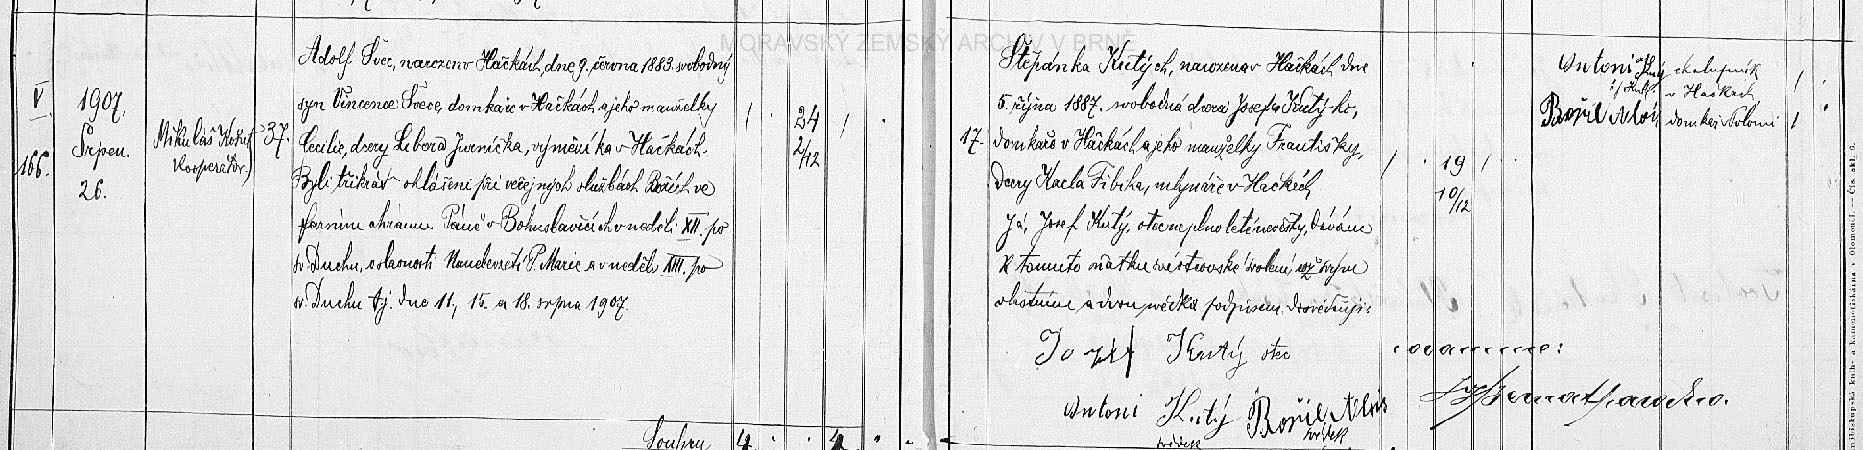 MORAVSKÝ ZEMSKÝ ARCHIV V BRNĚ
V
166.
1907.
Srpen.
26.
Mikuláš
Kooperátor.
37.
Adolf Švec, narozen v Hačkách, dne 9. června 1883. svobodný
syn Vincence Švece, domkáře v Hačkách a jeho manželky
Cecilie, dcery Libora Juvníčka, výměníka v Hačkách.
Byli třikráte ohlášeni při veřejných službách Božích ve
farním chrámu Páně v Bohuslavicích v neděli XII. po
sv. Duchu, o slavnosti Nanebevzetí P. Marie a v neděli XIII. po
sv. Duchu tj. dne 11., 15. a 18. srpna 1907.
1
24
2/12
1
Souhrn 4 4
17.
Štěpánka Krutých, narozena v Hačkách dne
5. října 1887. svobodná dcera Josefa Krutýho,
domkáře v Hačkách a jeho manželky Františky,
dcery Karla Fibicha, mlynáře v Hačkách,
Já, Josef Krutý, otec neplnoleté nevěsty, dávám
k tomuto sňatku své otcovské svolení, což svým
vlastním a dvou svědků podpisem dosvědčuji:
Jozef Krutý otec
Antoni Krutý Bořil Alois
svědek svědek
1
19
10/12
1
Antoni Krutý chalupník
v Hačkách
Bořil Alois domkář
1
1